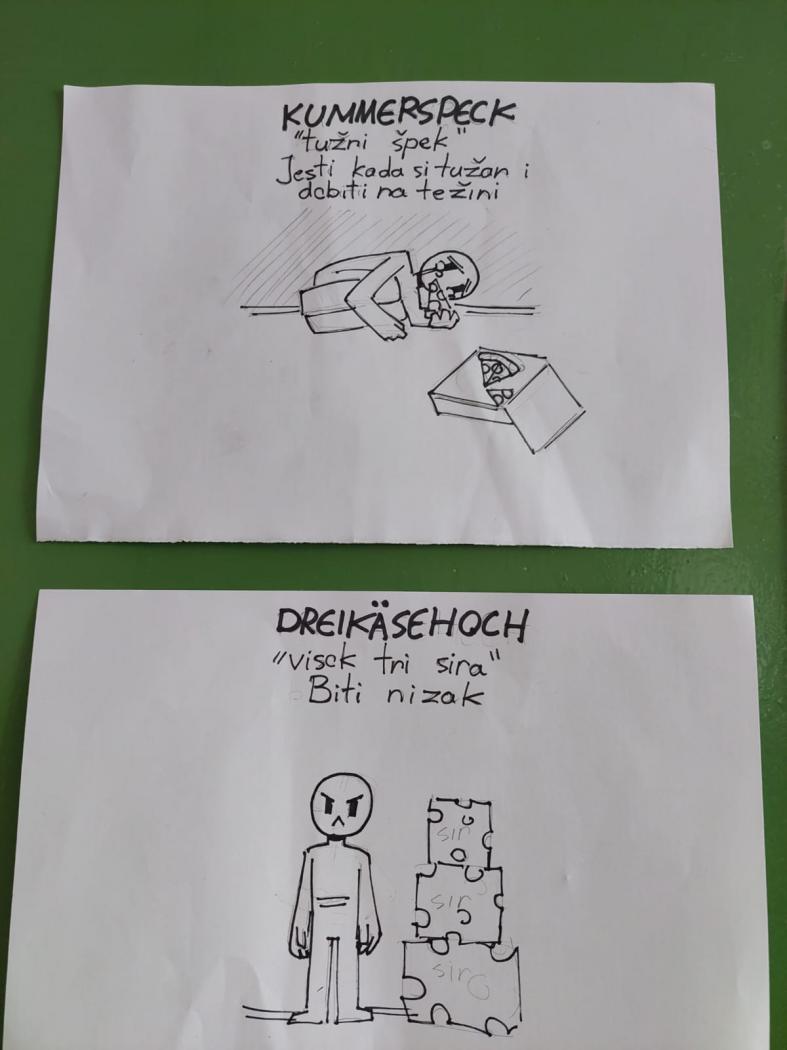 KUMMERSPECK
"tužni špek"
Jesti kada si tužan i
dobiti na težini
DREIKÄSEHOCH
"visok tri sira"
Biti nizak
sir
sir
sir